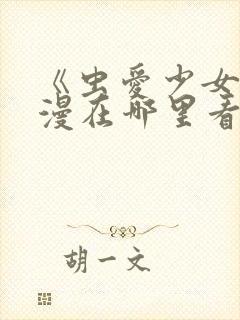 《虫爱少女
漫在哪里看
胡一文